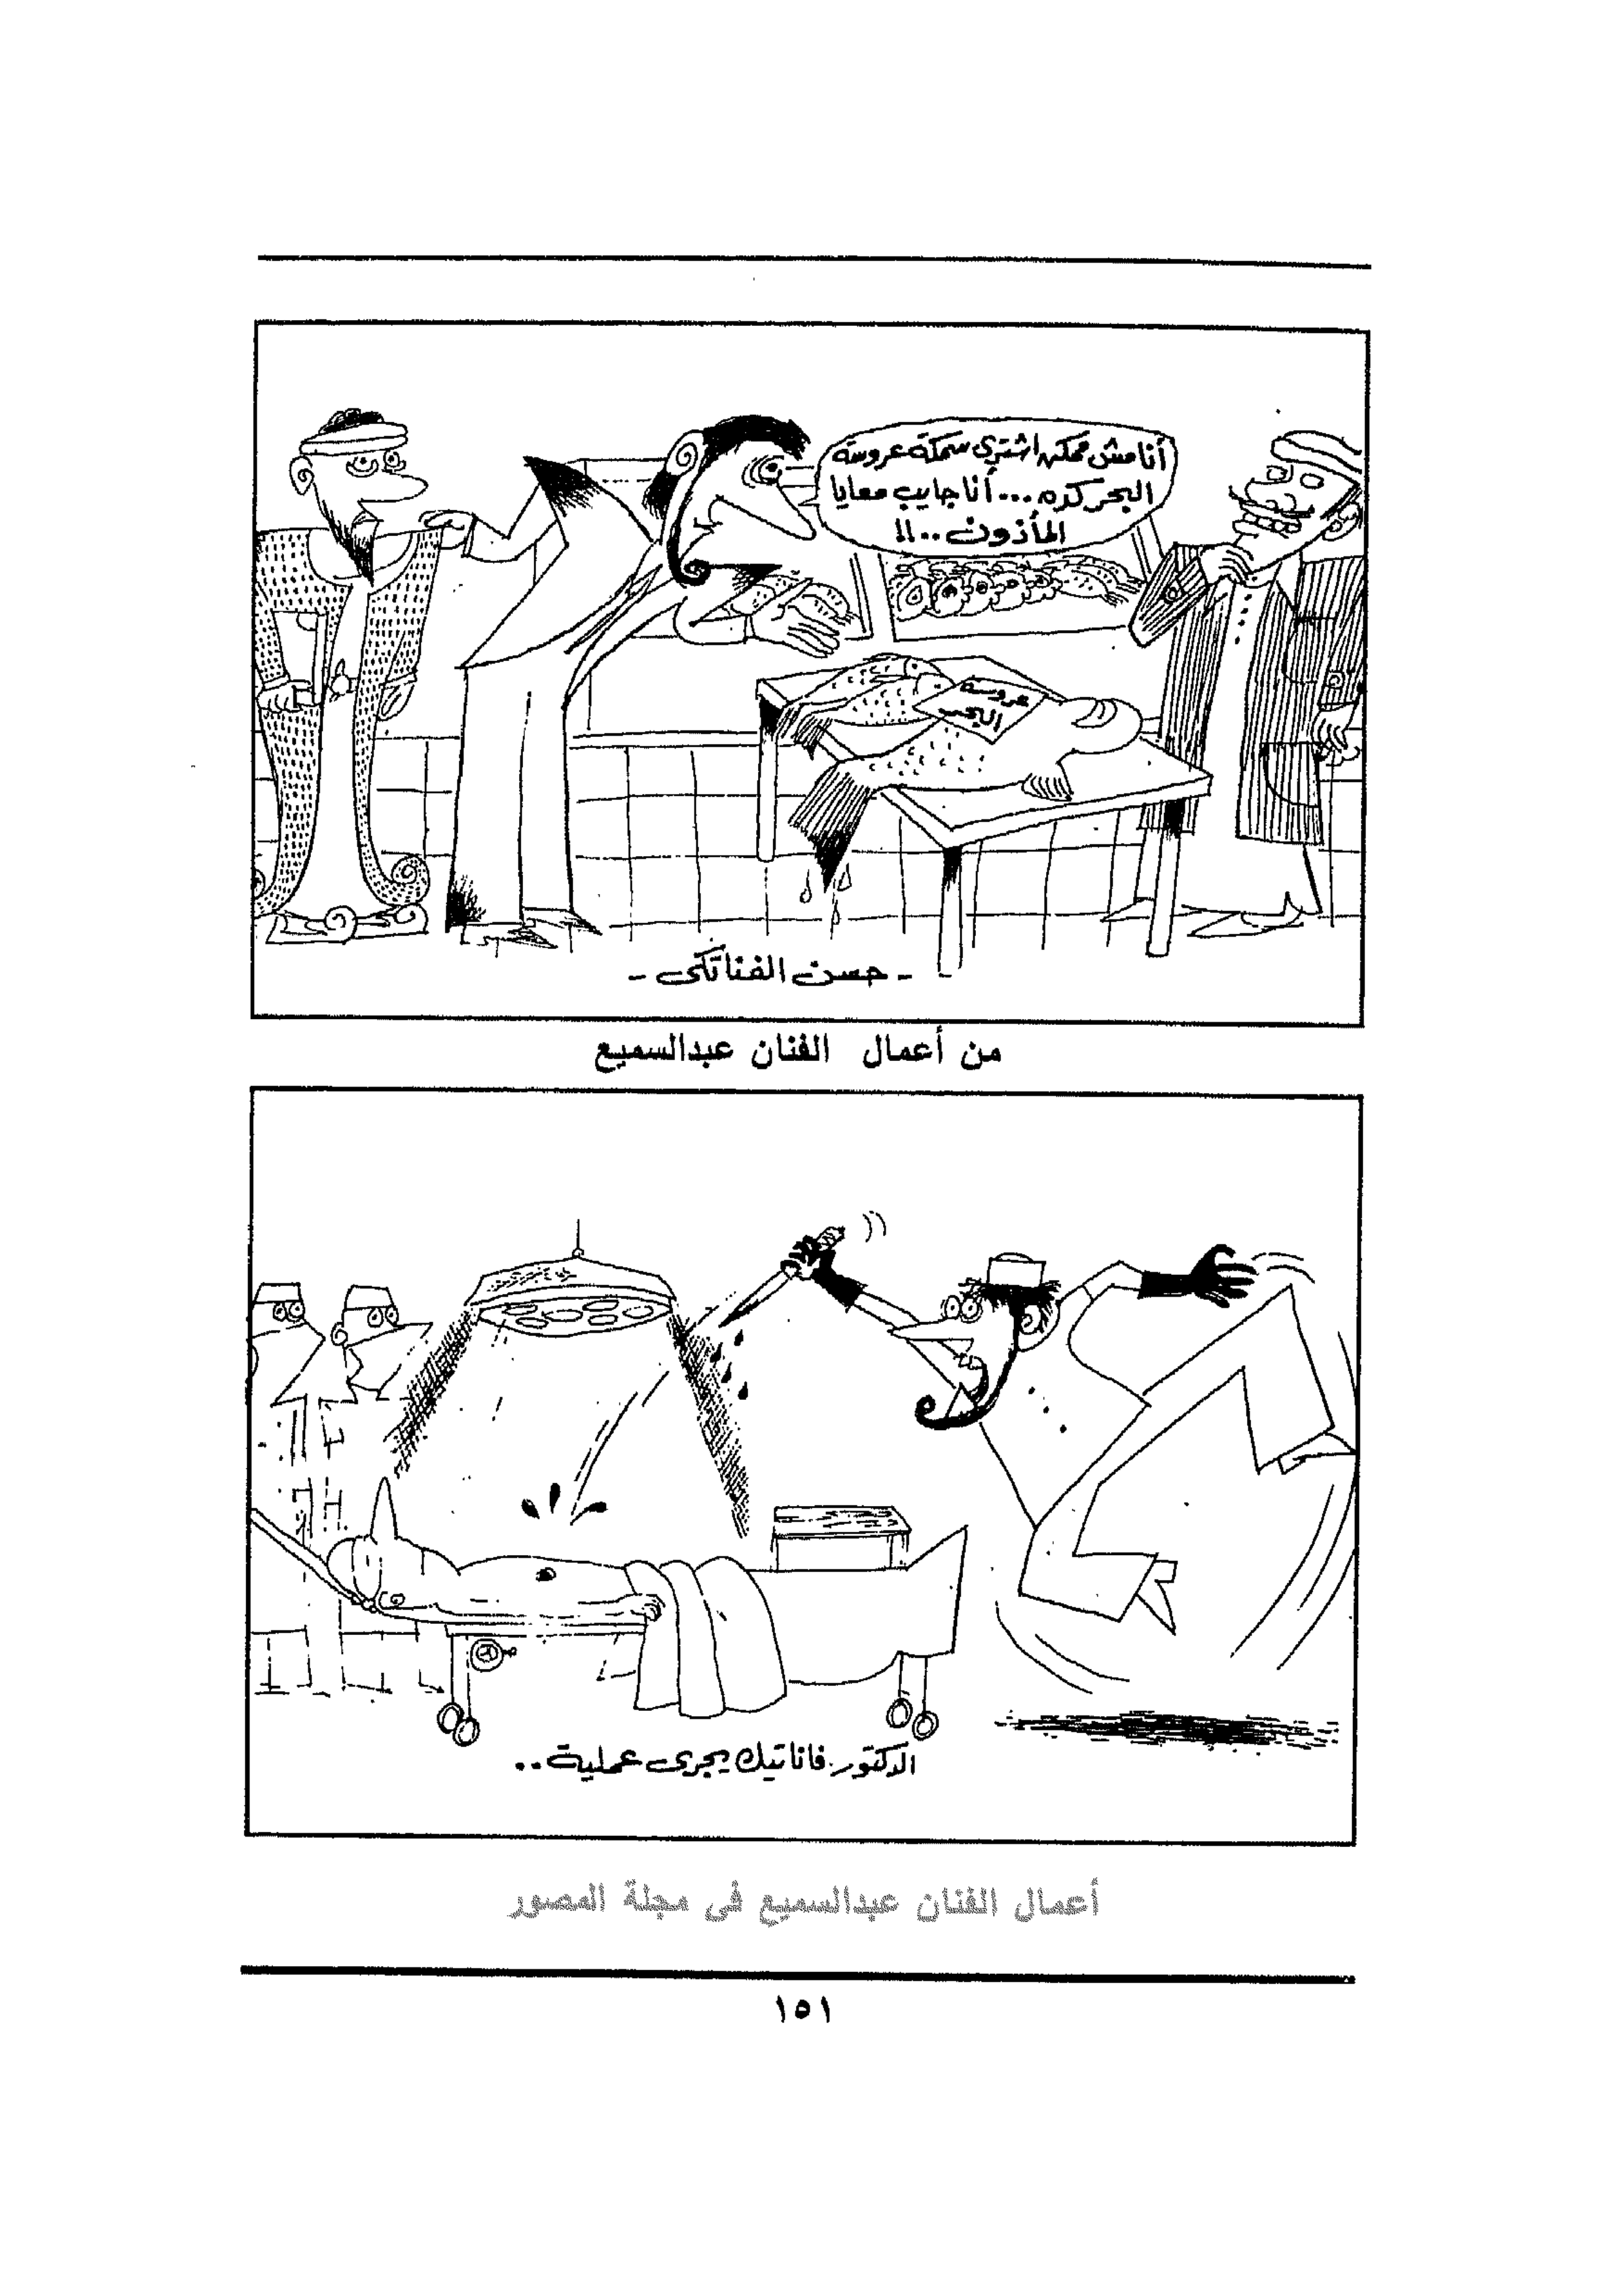 أنا مش ممكن اشتري سمكة عروسة
البحر كده ... أنا جايب معايا
المأذون ..!!
عروسة
البحر
- حسن الفناتكى -
من أعمال الفنان عبدالسميع
الدكتور فاناتيك يجرى عملية ..
أعمال الفنان عبدالسميع فى مجلة المصور
١٥١